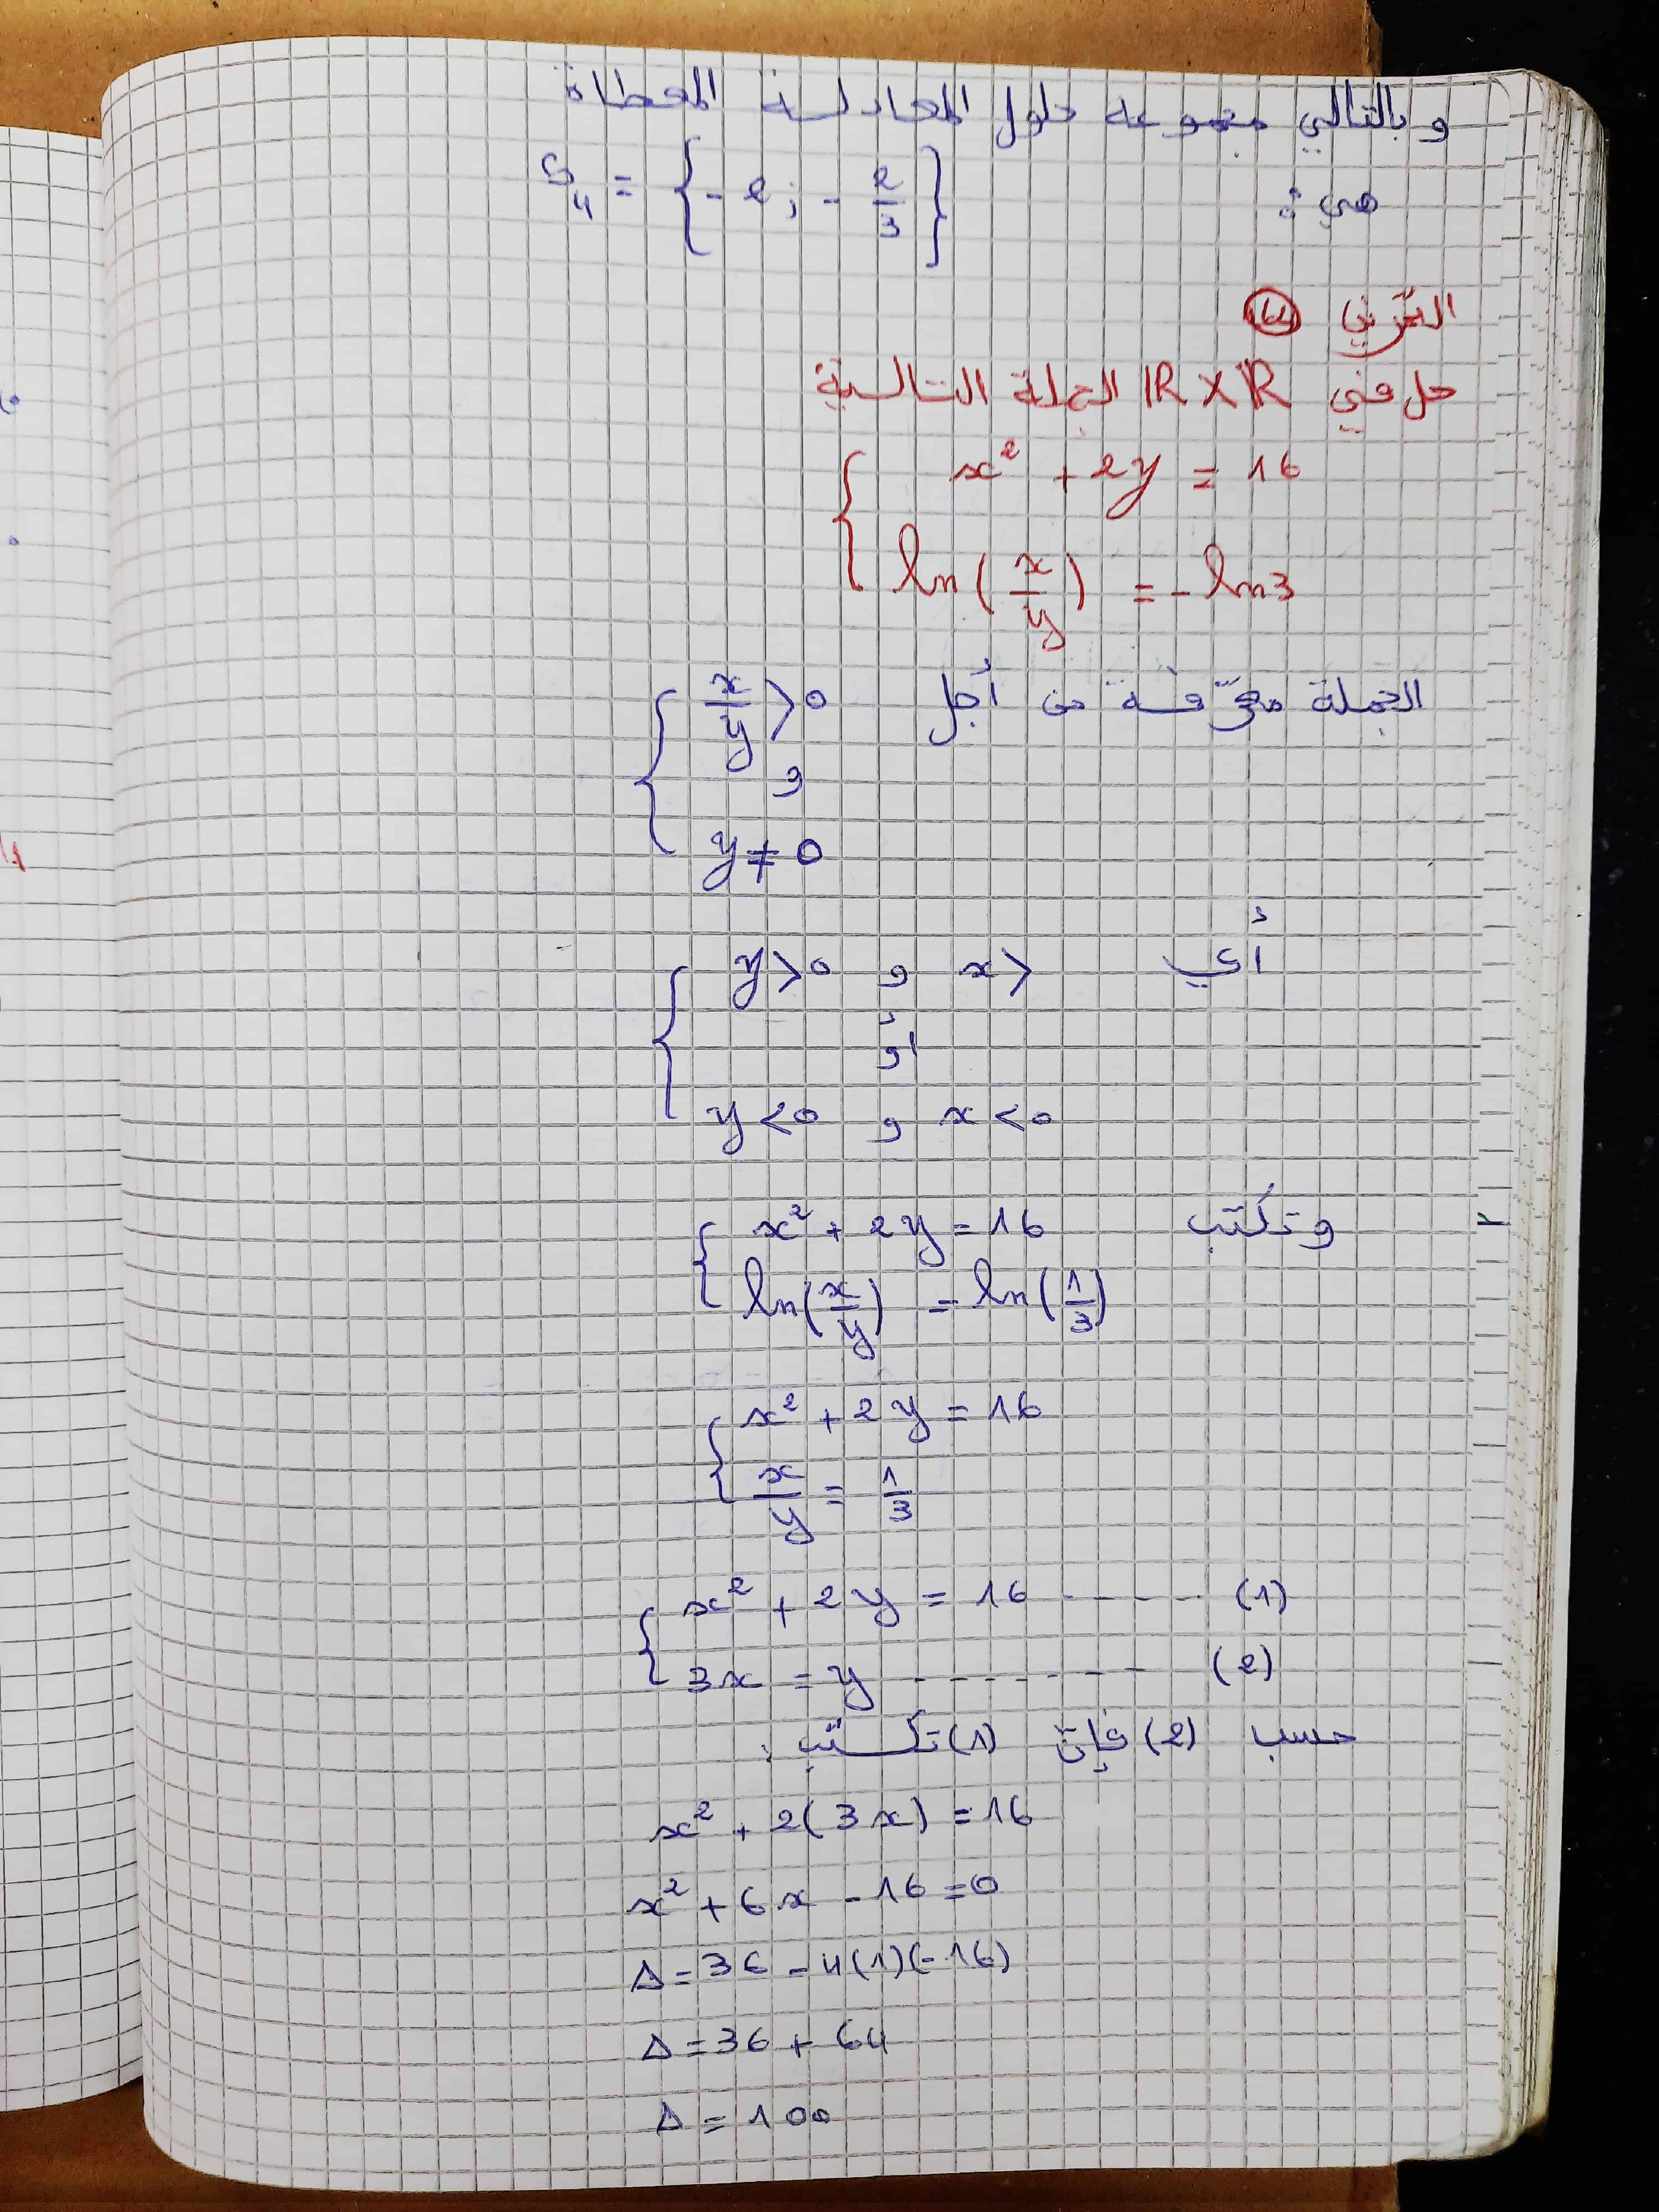 و بالتالي مجموعة حلول المعادلة المعطاة
هي : S₄ = { -2 ; - 2/3 }
التمرين
حل في ℝ×ℝ الجملة التالية
{ x² + 2y = 16
ln(x/y) = -ln3
الجملة معرّفة من أجل { x/y > 0
و
y ≠ 0
أي { y>0 و x>
أو
y<0 و x<0
وتكتب { x² + 2y = 16
ln(x/y) = ln(1/3)
{ x² + 2y = 16
x/y = 1/3
{ x² + 2y = 16 ----- (1)
3x = y ------- (2)
حسب (2) فإن (1) تكتب :
x² + 2(3x) = 16
x² + 6x - 16 = 0
Δ = 36 - 4(1)(-16)
Δ = 36 + 64
Δ = 100